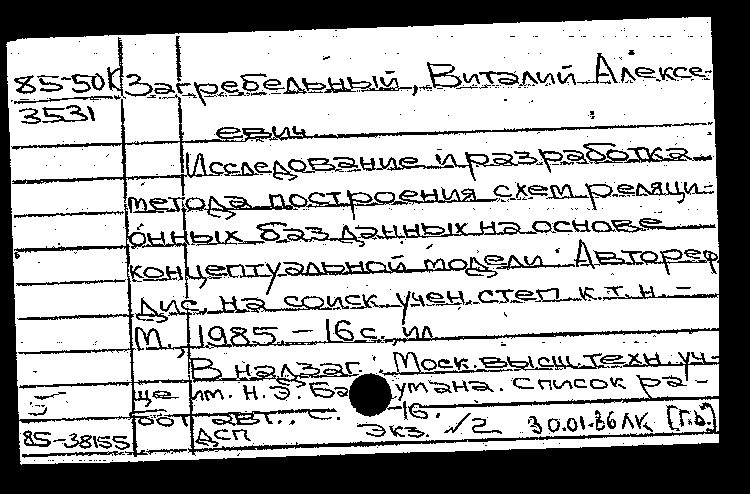 85-50К Загребельный, Виталий Алексе-
3531
евич
Исследование и разработка
метода построения схем реляци-
онных баз данных на основе
концептуальной модели: Автореф
дис. на соиск учен. степ к.т.н. -
М., 1985. - 16 с., ил
В надзаг.: Моск. высш. техн. уч-
ще им. н. э. Ба умана. Список ра-
бот авт.: с. 16.
85-38155 ДСП Экз. √2 30.01.86 ЛК [г.б.]